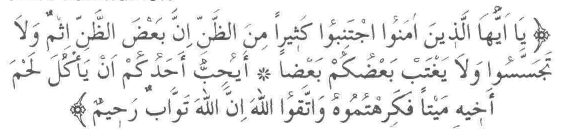 ﴿ يَا اَيُّهَا الَّذ۪ينَ اٰمَنُوا اجْتَنِبُوا كَث۪يراً مِنَ الظَّنِّ اِنَّ بَعْضَ الظَّنِّ اِثْمٌ وَلَا
تَجَسَّسُوا وَلَا يَغْتَبْ بَعْضُكُمْ بَعْضاً * اَيُحِبُّ اَحَدُكُمْ اَنْ يَاْكُلَ لَحْمَ
اَخ۪يهِ مَيْتاً فَكَرِهْتُمُوهُ وَاتَّقُوا اللّٰهَ اِنَّ اللّٰهَ تَوَّابٌ رَح۪يمٌ ﴾